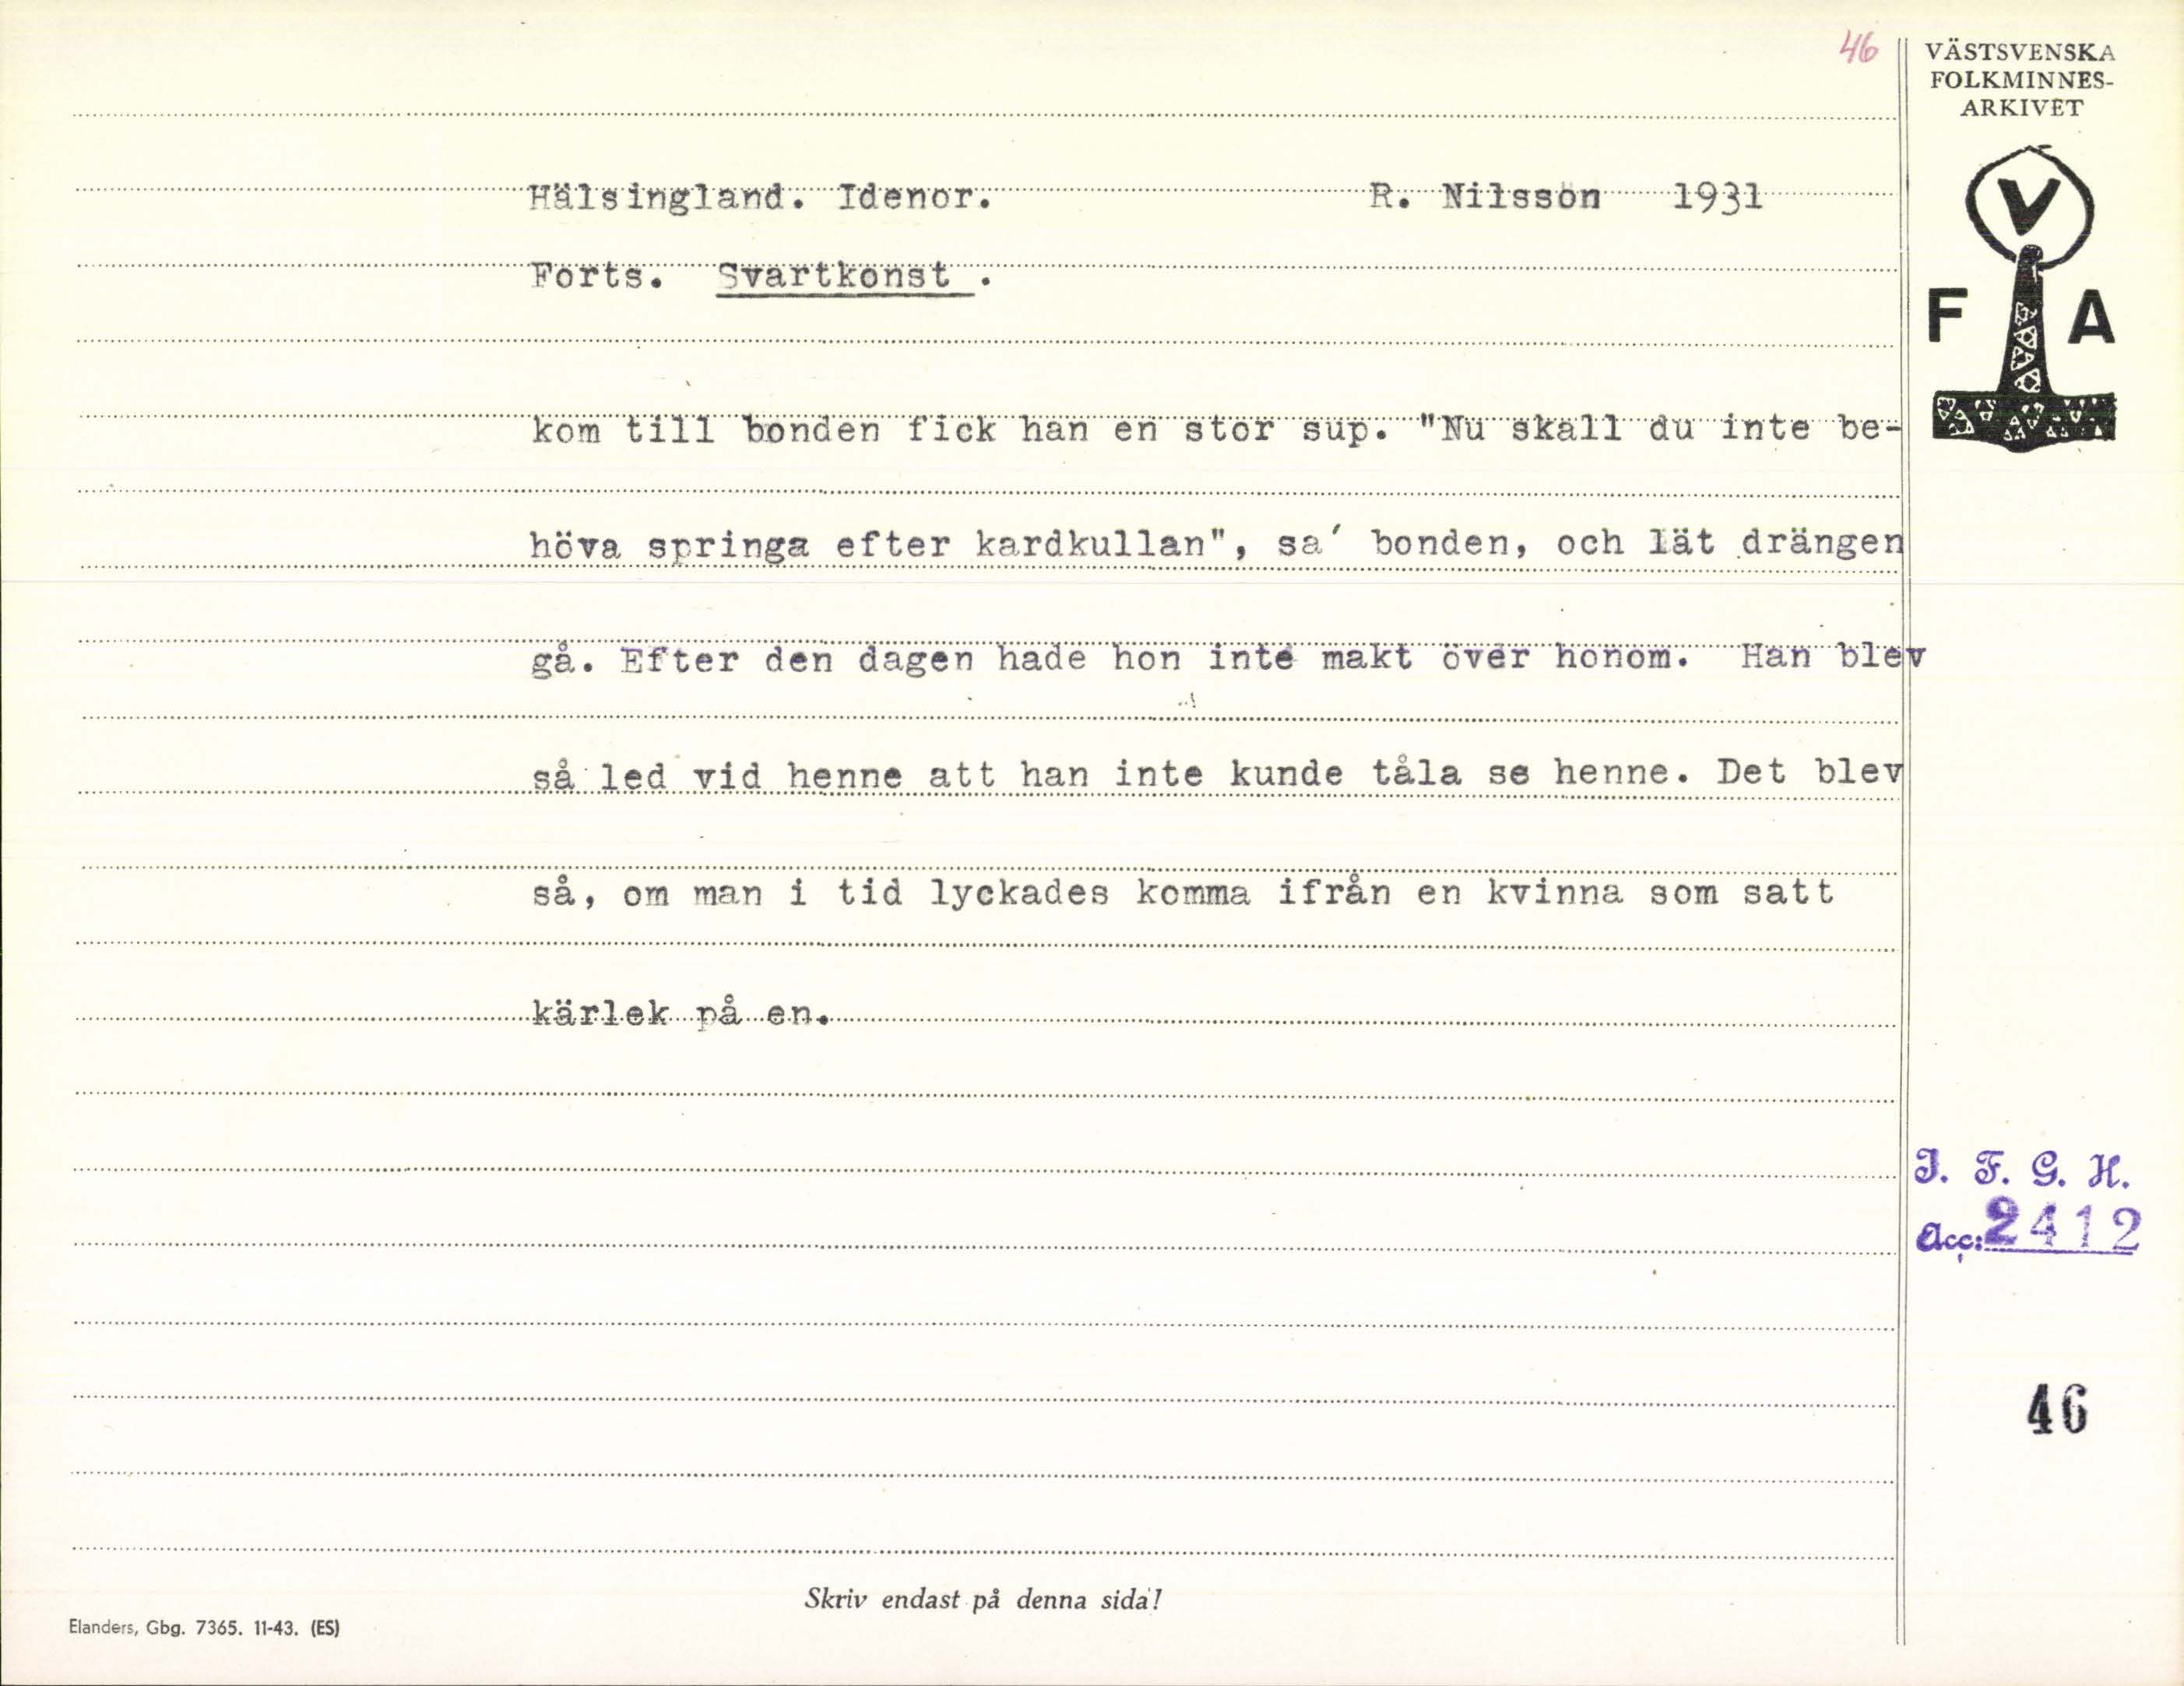 46
VÄSTSVENSKA
FOLKMINNES-
ARKIVET
Hälsingland. Idenor. R. Nilsson 1931
Forts. Svartkonst .
V
F A
kom till bonden fick han en stor sup. "Nu skall du inte be-
höva springa efter kardkullan", sa' bonden, och lät drängen
gå. Efter den dagen hade hon inte makt över honom. Han blev
så led vid henne att han inte kunde tåla se henne. Det blev
så, om man i tid lyckades komma ifrån en kvinna som satt
kärlek på en.
I. F. G. H.
Acc: 2412
46
Skriv endast på denna sida!
Elanders, Gbg. 7365. 11-43. (ES)